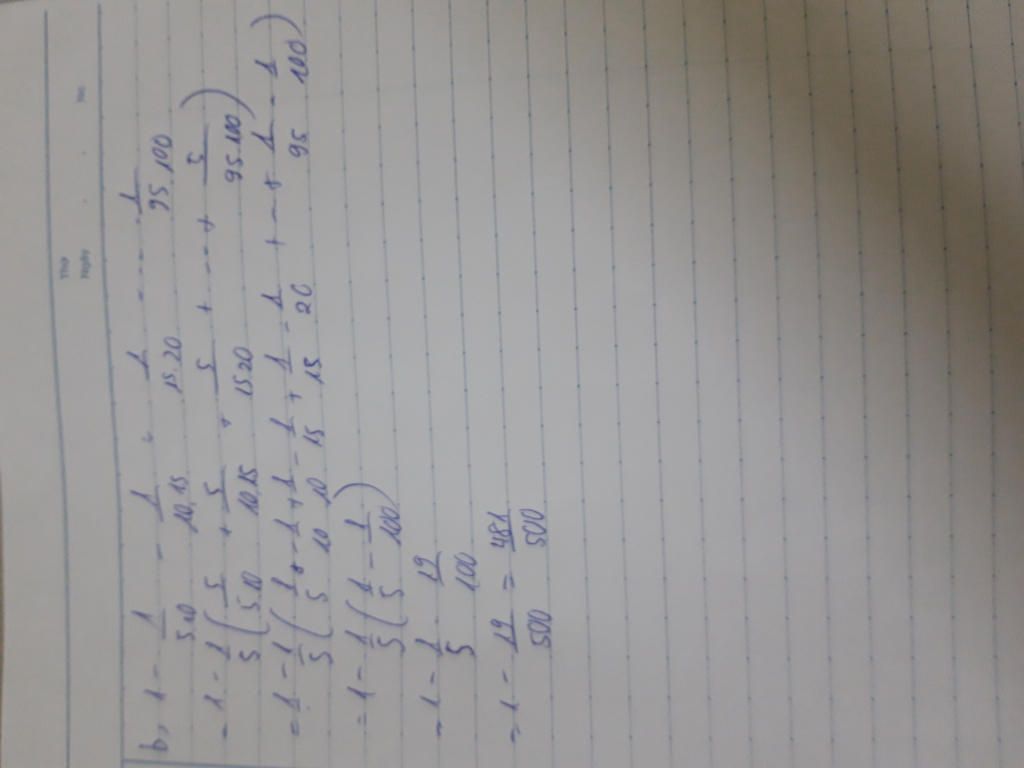 Thứ
Ngày No.
b, 1 - 1/5.10 - 1/10.15 - 1/15.20 - ... - 1/95.100
= 1 - 1/5 ( 5/5.10 + 5/10.15 + 5/15.20 + ... + 5/95.100 )
= 1 - 1/5 ( 1/5 - 1/10 + 1/10 - 1/15 + 1/15 - 1/20 + ... + 1/95 - 1/100 )
= 1 - 1/5 ( 1/5 - 1/100 )
= 1 - 1/5 . 19/100
= 1 - 19/500 = 481/500